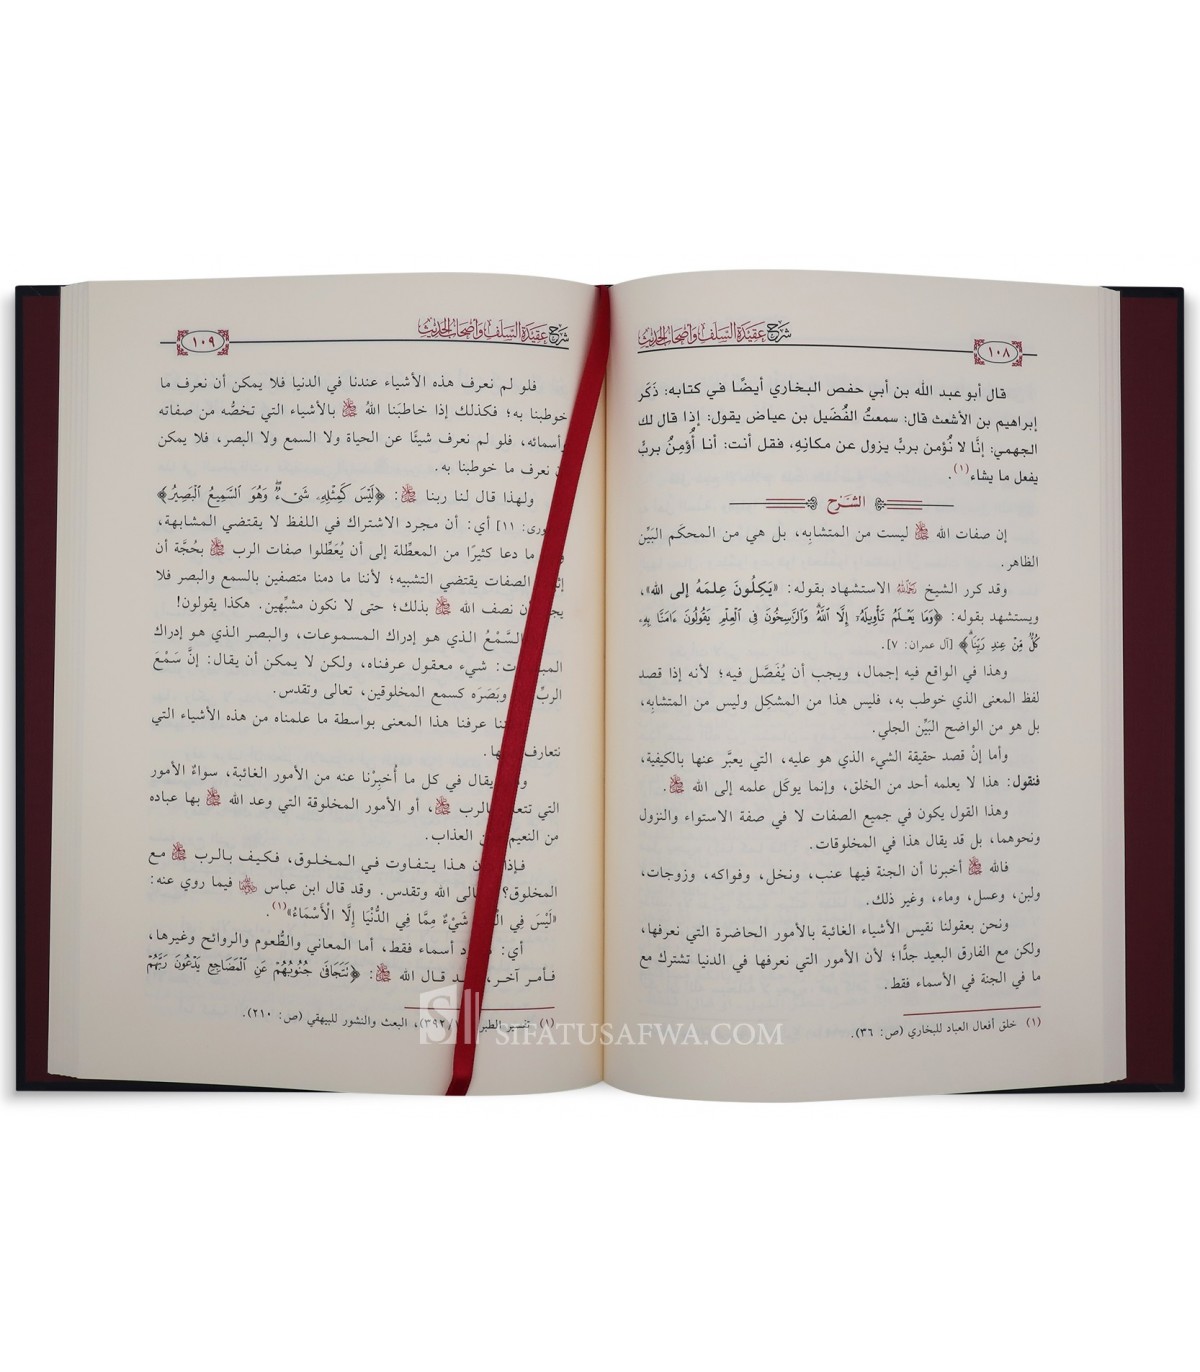 شرح عقيدة السلف وأصحاب الحديث
١٠٨
قال أبو عبد الله بن أبي حفص البخاري أيضًا في كتابه: ذَكَر
إبراهيم بن الأشعث قال: سمعتُ الفُضَيل بن عياض يقول: إذا قال لك
الجهمي: إنَّا لا نُؤمن بربٍّ يزول عن مكانِهِ، فقل أنت: أنا أُؤمِنُ بربٍّ
يفعل ما يشاء(١).
الشَّرح
إن صفات الله ﷻ ليست من المتشابِه، بل هي من المحكَم البَيِّن
الظاهر.
وقد كرر الشيخ رَحِمَهُ اللهُ الاستشهاد بقوله: «يَكِلُونَ عِلمَهُ إلى الله»،
ويستشهد بقوله: ﴿وَمَا يَعْلَمُ تَأْوِيلَهُۥٓ إِلَّا ٱللَّهُ وَٱلرَّٰسِخُونَ فِى ٱلْعِلْمِ يَقُولُونَ ءَامَنَّا بِهِۦ
كُلٌّ مِّنْ عِندِ رَبِّنَا﴾ [آل عمران: ٧].
وهذا في الواقع فيه إجمال، ويجب أن يُفَصَّل فيه؛ لأنه إذا قصد
لفظ المعنى الذي خوطب به، فليس هذا من المشكِل وليس من المتشابِه،
بل هو من الواضح البَيِّن الجلي.
وأما إنْ قصد حقيقة الشيء الذي هو عليه، التي يعبَّر عنها بالكيفية،
فنقول: هذا لا يعلمه أحد من الخلق، وإنما يوكَل علمه إلى الله ﷻ.
وهذا القول يكون في جميع الصفات لا في صفة الاستواء والنزول
ونحوهما، بل قد يقال هذا في المخلوقات.
فالله ﷻ أخبرنا أن الجنة فيها عنب، ونخل، وفواكه، وزوجات،
ولبن، وعسل، وماء، وغير ذلك.
ونحن بعقولنا نقيس الأشياء الغائبة بالأمور الحاضرة التي نعرفها،
ولكن مع الفارق البعيد جدًّا؛ لأن الأمور التي نعرفها في الدنيا تشترك مع
ما في الجنة في الأسماء فقط.
(١) خلق أفعال العباد للبخاري (ص: ٣٦).
شرح عقيدة السلف وأصحاب الحديث
١٠٩
فلو لم نعرف هذه الأشياء عندنا في الدنيا فلا يمكن أن نعرف ما
خوطبنا به؛ فكذلك إذا خاطبَنا اللهُ ﷻ بالأشياء التي تخصُّه من صفاته
وأسمائه، فلو لم نعرف شيئًا عن الحياة ولا السمع ولا البصر، فلا يمكن
نعرف ما خوطبنا به.
ولهذا قال لنا ربنا ﷻ: ﴿لَيْسَ كَمِثْلِهِۦ شَىْءٌ وَهُوَ ٱلسَّمِيعُ ٱلْبَصِيرُ﴾
ورى: ١١] أي: أن مجرد الاشتراك في اللفظ لا يقتضي المشابهة،
ما دعا كثيرًا من المعطِّلة إلى أن يُعَطِّلوا صفات الرب ﷻ بحُجَّة أن
الصفات يقتضي التشبيه؛ لأننا ما دمنا متصفين بالسمع والبصر فلا
ن نصف الله ﷻ بذلك؛ حتى لا نكون مشبِّهين. هكذا يقولون!
السَّمْعُ الذي هو إدراك المسموعات، والبصر الذي هو إدراك
المب‍ ‍ت: شيء معقول عرفناه، ولكن لا يمكن أن يقال: إنَّ سَمْعَ
الربِّ وبَصَرَه كسمع المخلوقين، تعالى وتقدس.
نا عرفنا هذا المعنى بواسطة ما علمناه من هذه الأشياء التي
نتعارف ‍ها.
يقال في كل ما أُخبِرْنا عنه من الأمور الغائبة، سواءٌ الأمور
التي تتع‍ بالرب ﷻ، أو الأمور المخلوقة التي وعد الله ﷻ بها عباده
من النعيم العذاب.
فإذا هذا يتفاوت في المخلوق، فكيف بالرب ﷻ مع
المخلوق؟ ‍الى الله وتقدس. وقد قال ابن عباس رضي الله عنهما فيما روي عنه:
«لَيْسَ فِي الْ‍ شَيْءٌ مِمَّا فِي الدُّنْيَا إِلَّا الْأَسْمَاءُ»(١).
أي: د أسماء فقط، أما المعاني والطُّعوم والروائح وغيرها،
فـأمـر آخـر، ‍د قـال الله ﷻ: ﴿تَتَجَافَىٰ جُنُوبُهُمْ عَنِ ٱلْمَضَاجِعِ يَدْعُونَ رَبَّهُمْ
(١) تفسير الطبر ١/ ٣٩٢)، البعث والنشور للبيهقي (ص: ٢١٠).
SIFATUSAFWA.COM